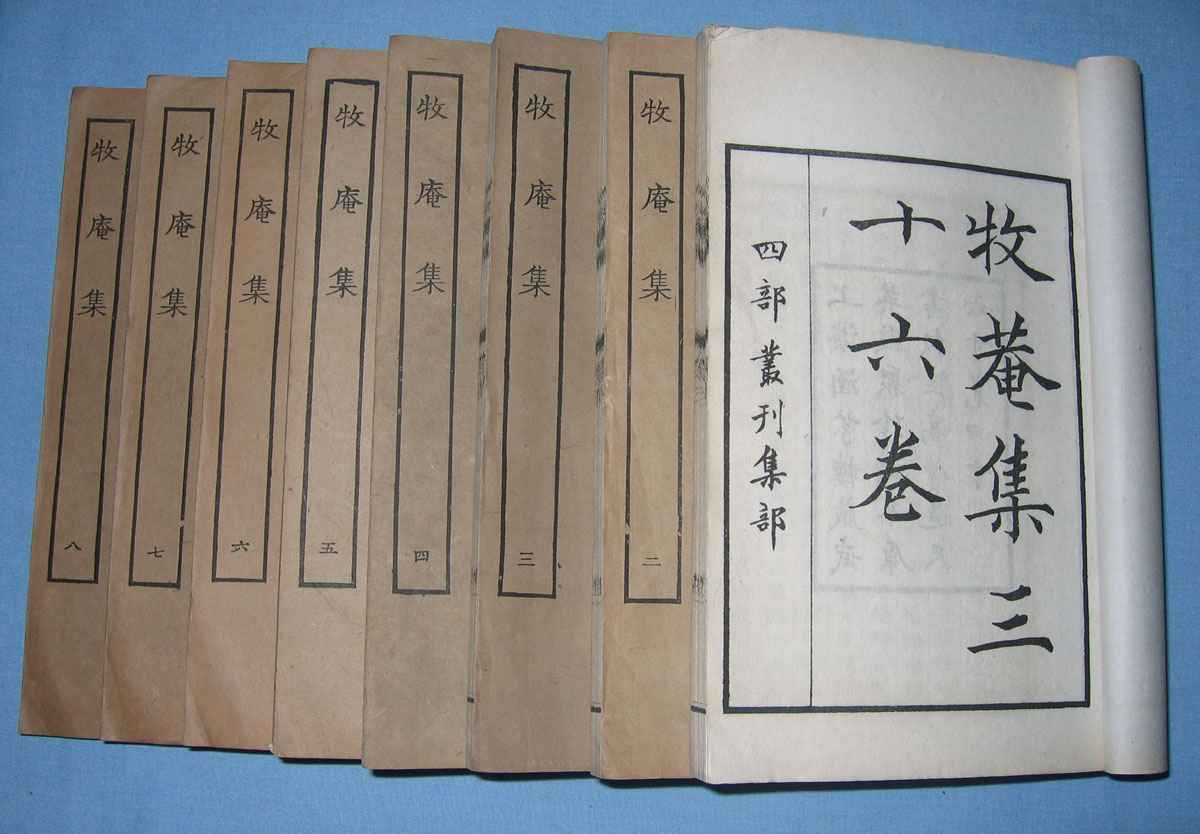 牧菴集三
十六卷
四部叢刊集部
牧庵集
二
牧庵集
三
牧庵集
四
牧庵集
五
牧庵集
六
牧庵集
七
牧庵集
八